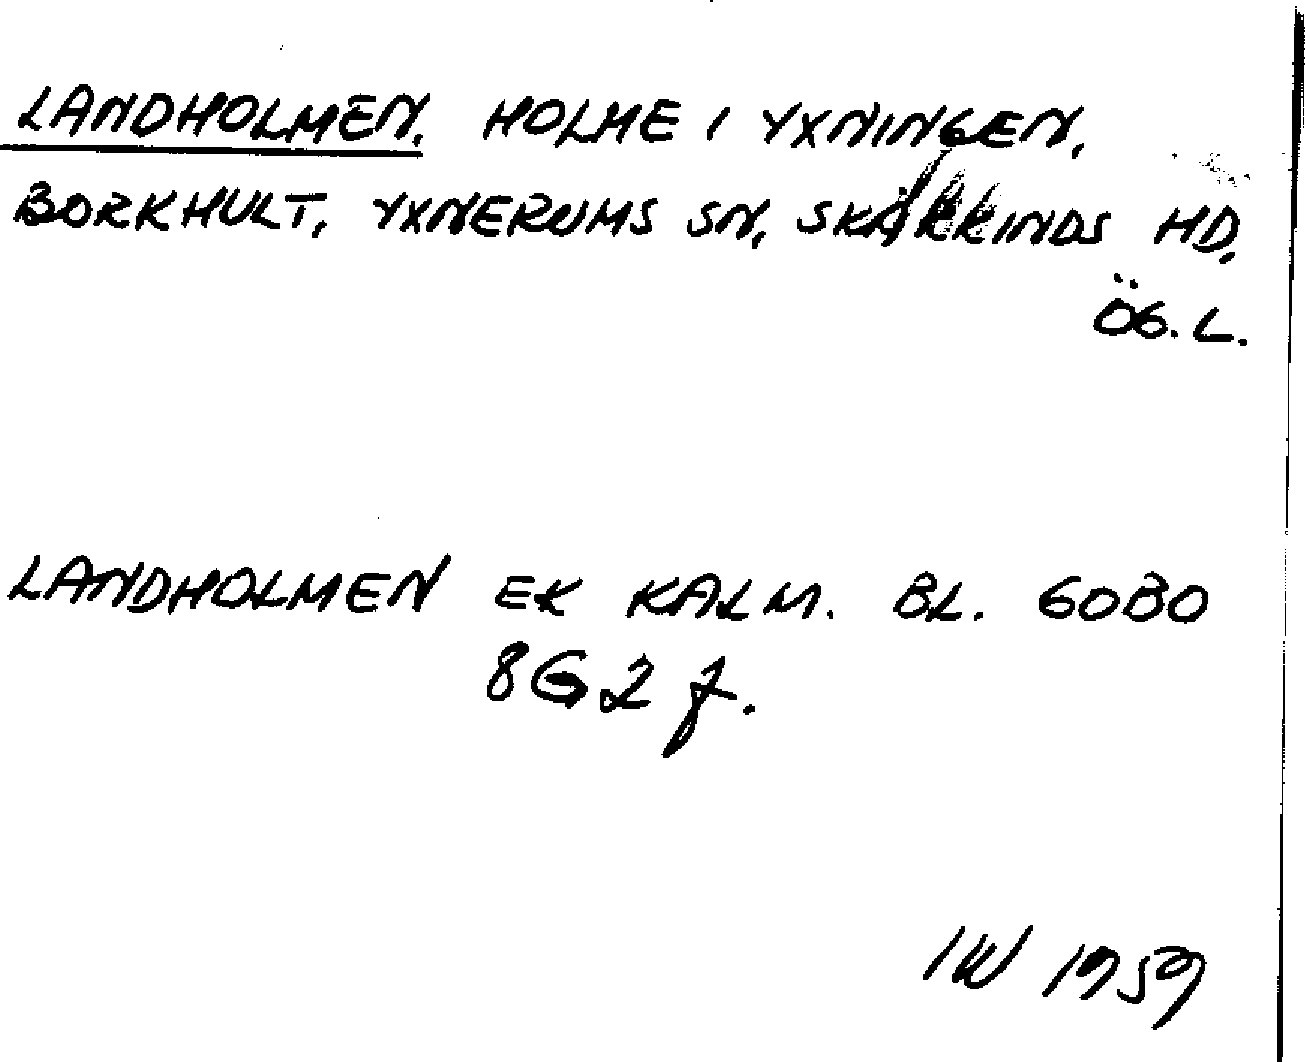 LANDHOLMEN. HOLME I YXNINGEN,
BORKHULT, YXNERUMS SN, SKÄRKINDS HD.
ÖG. L.
LANDHOLMEN EK KALM. BL. 6OBO
8G2f.
IW 1959